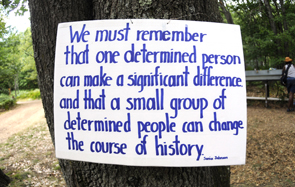 We must remember
that one determined person
can make a significant difference
and that a small group of
determined people can change
the course of history.